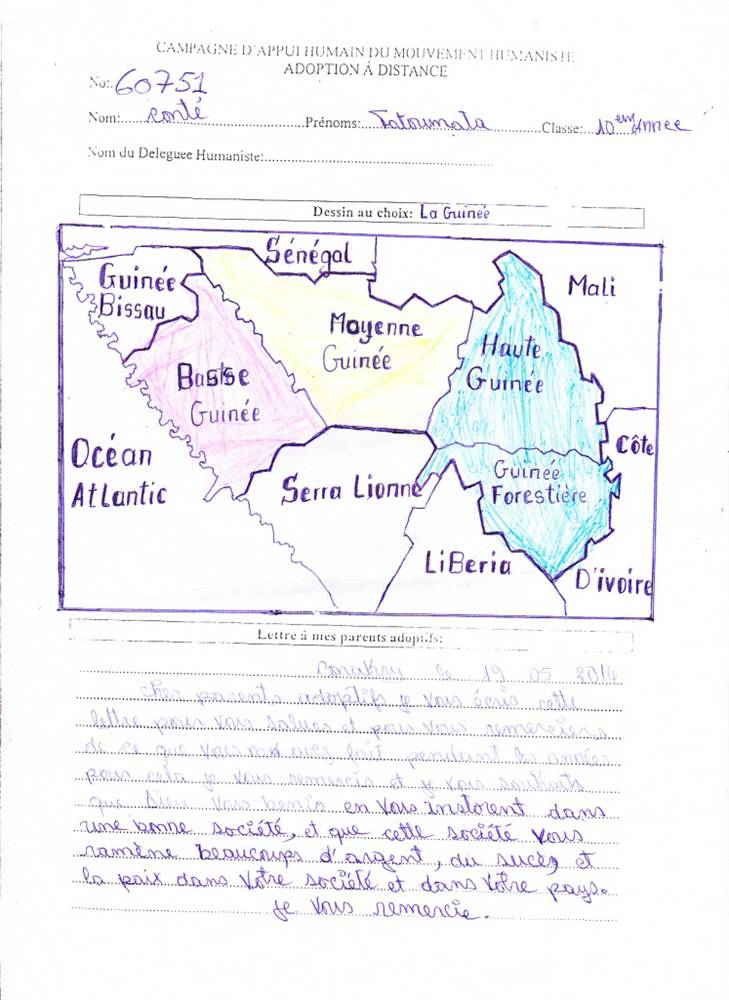 CAMPAGNE D'APPUI HUMAIN DU MOUVEMENT HUMANISTE
ADOPTION À DISTANCE
No: 60751
Nom: Conté Prénoms: Fatoumata Classe: 10ème Année
Nom du Deleguee Humaniste:
Dessin au choix: La Guinée
Sénégal
Guinée Bissau
Mali
Moyenne Guinée
Haute Guinée
Basse Guinée
Côte
Océan Atlantic
Guinée Forestière
Serra Lionne
LiBeria
D'ivoire
Lettre à mes parents adoptifs:
Conakry le 19 05 2014
cher parents adoptifs je vous écris cette
lettre pour vous saluer et pour vous remerciers
de ce que vous fait pendant les années
pour cela je vous remercis et je vous souhaits
que Dieu vous benis en vous instorent dans
une bonne société, et que cette société vous
ramème beaucoups d'argent, du sucès et
la paix dans votre société et dans votre pays.
je vous remercie.